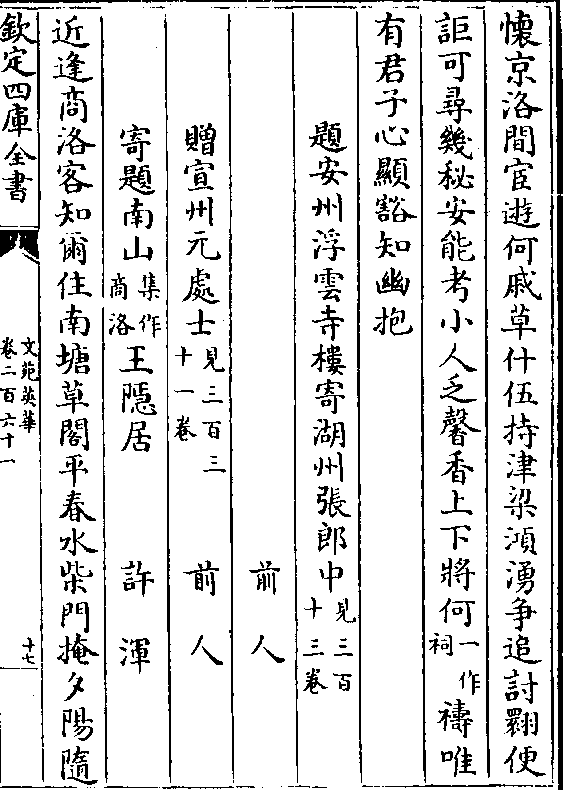 懷京洛間宦遊何戚草什伍持津梁澒湧爭追討翾便
詎可尋幾秘安能考小人乏馨香上下將何一作祠禱唯
有君子心顯豁知幽抱
題安州浮雲寺樓寄湖州張郎中見三百十三卷
前人
贈宣州元處士見三百三十一卷 前人
寄題南山集作商洛王隱居 許渾
近逢商洛客知爾住南塘草閣平春水柴門掩夕陽隨
欽定四庫全書
文苑英華
卷二百六十一
十七